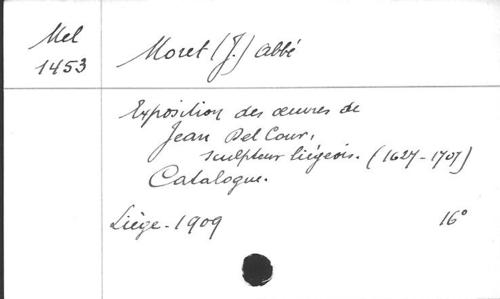 Mel
1453
Moret (J.) abbé
Exposition des œuvres de
Jean Del Cour,
sculpteur liégeois. (1627-1707)
Catalogue.
Liège-1909
16°